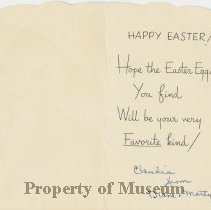 HAPPY EASTER!
Hope the Easter Eggs
You find
Will be your very
Favorite kind!
Claudia
from
Diane + Marty
Property of Museum